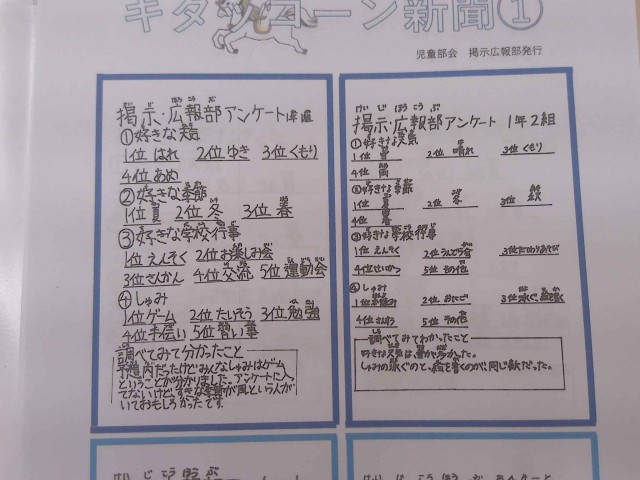 キタッコーン新聞①
児童部会 掲示広報部発行
掲示・広報部アンケート
①好きな天気
1位 はれ 2位 ゆき 3位 くもり
4位 あめ
②好きな季節
1位 夏 2位 冬 3位 春
③好きな学校行事
1位 えんそく 2位 お楽しみ会
3位 さんかん 4位 交流 5位 運動会
④しゅみ
1位 ゲーム 2位 たいそう 3位 勉強
4位 手伝い 5位 習い事
調べてみて分かったこと
予想内だったけどみんなしゅみはゲーム
ということが分かりました。アンケートに入
てないけど、すきな季節が風という人が
いておもしろかったです。
けいじ こうほうぶ
掲示・広報部アンケート 1年2組
①好きな天気
1位 雪 2位 晴れ 3位 くもり
4位 雨
②好きな季節
1位 夏 2位 冬 3位 秋
4位 春
③好きな学校行事
1位 えんそく 2位 うんどう会 3位
4位 せいかつ 5位 その他
④しゅみ
1位 2位 おにご 3位 泳ぐ、絵を描く
4位 さんすう 5位 その他
調べてみてわかったこと
好きな天気は、雪が多かった。
しゅみの泳ぐのと、絵を書くのが、同じ数だった。